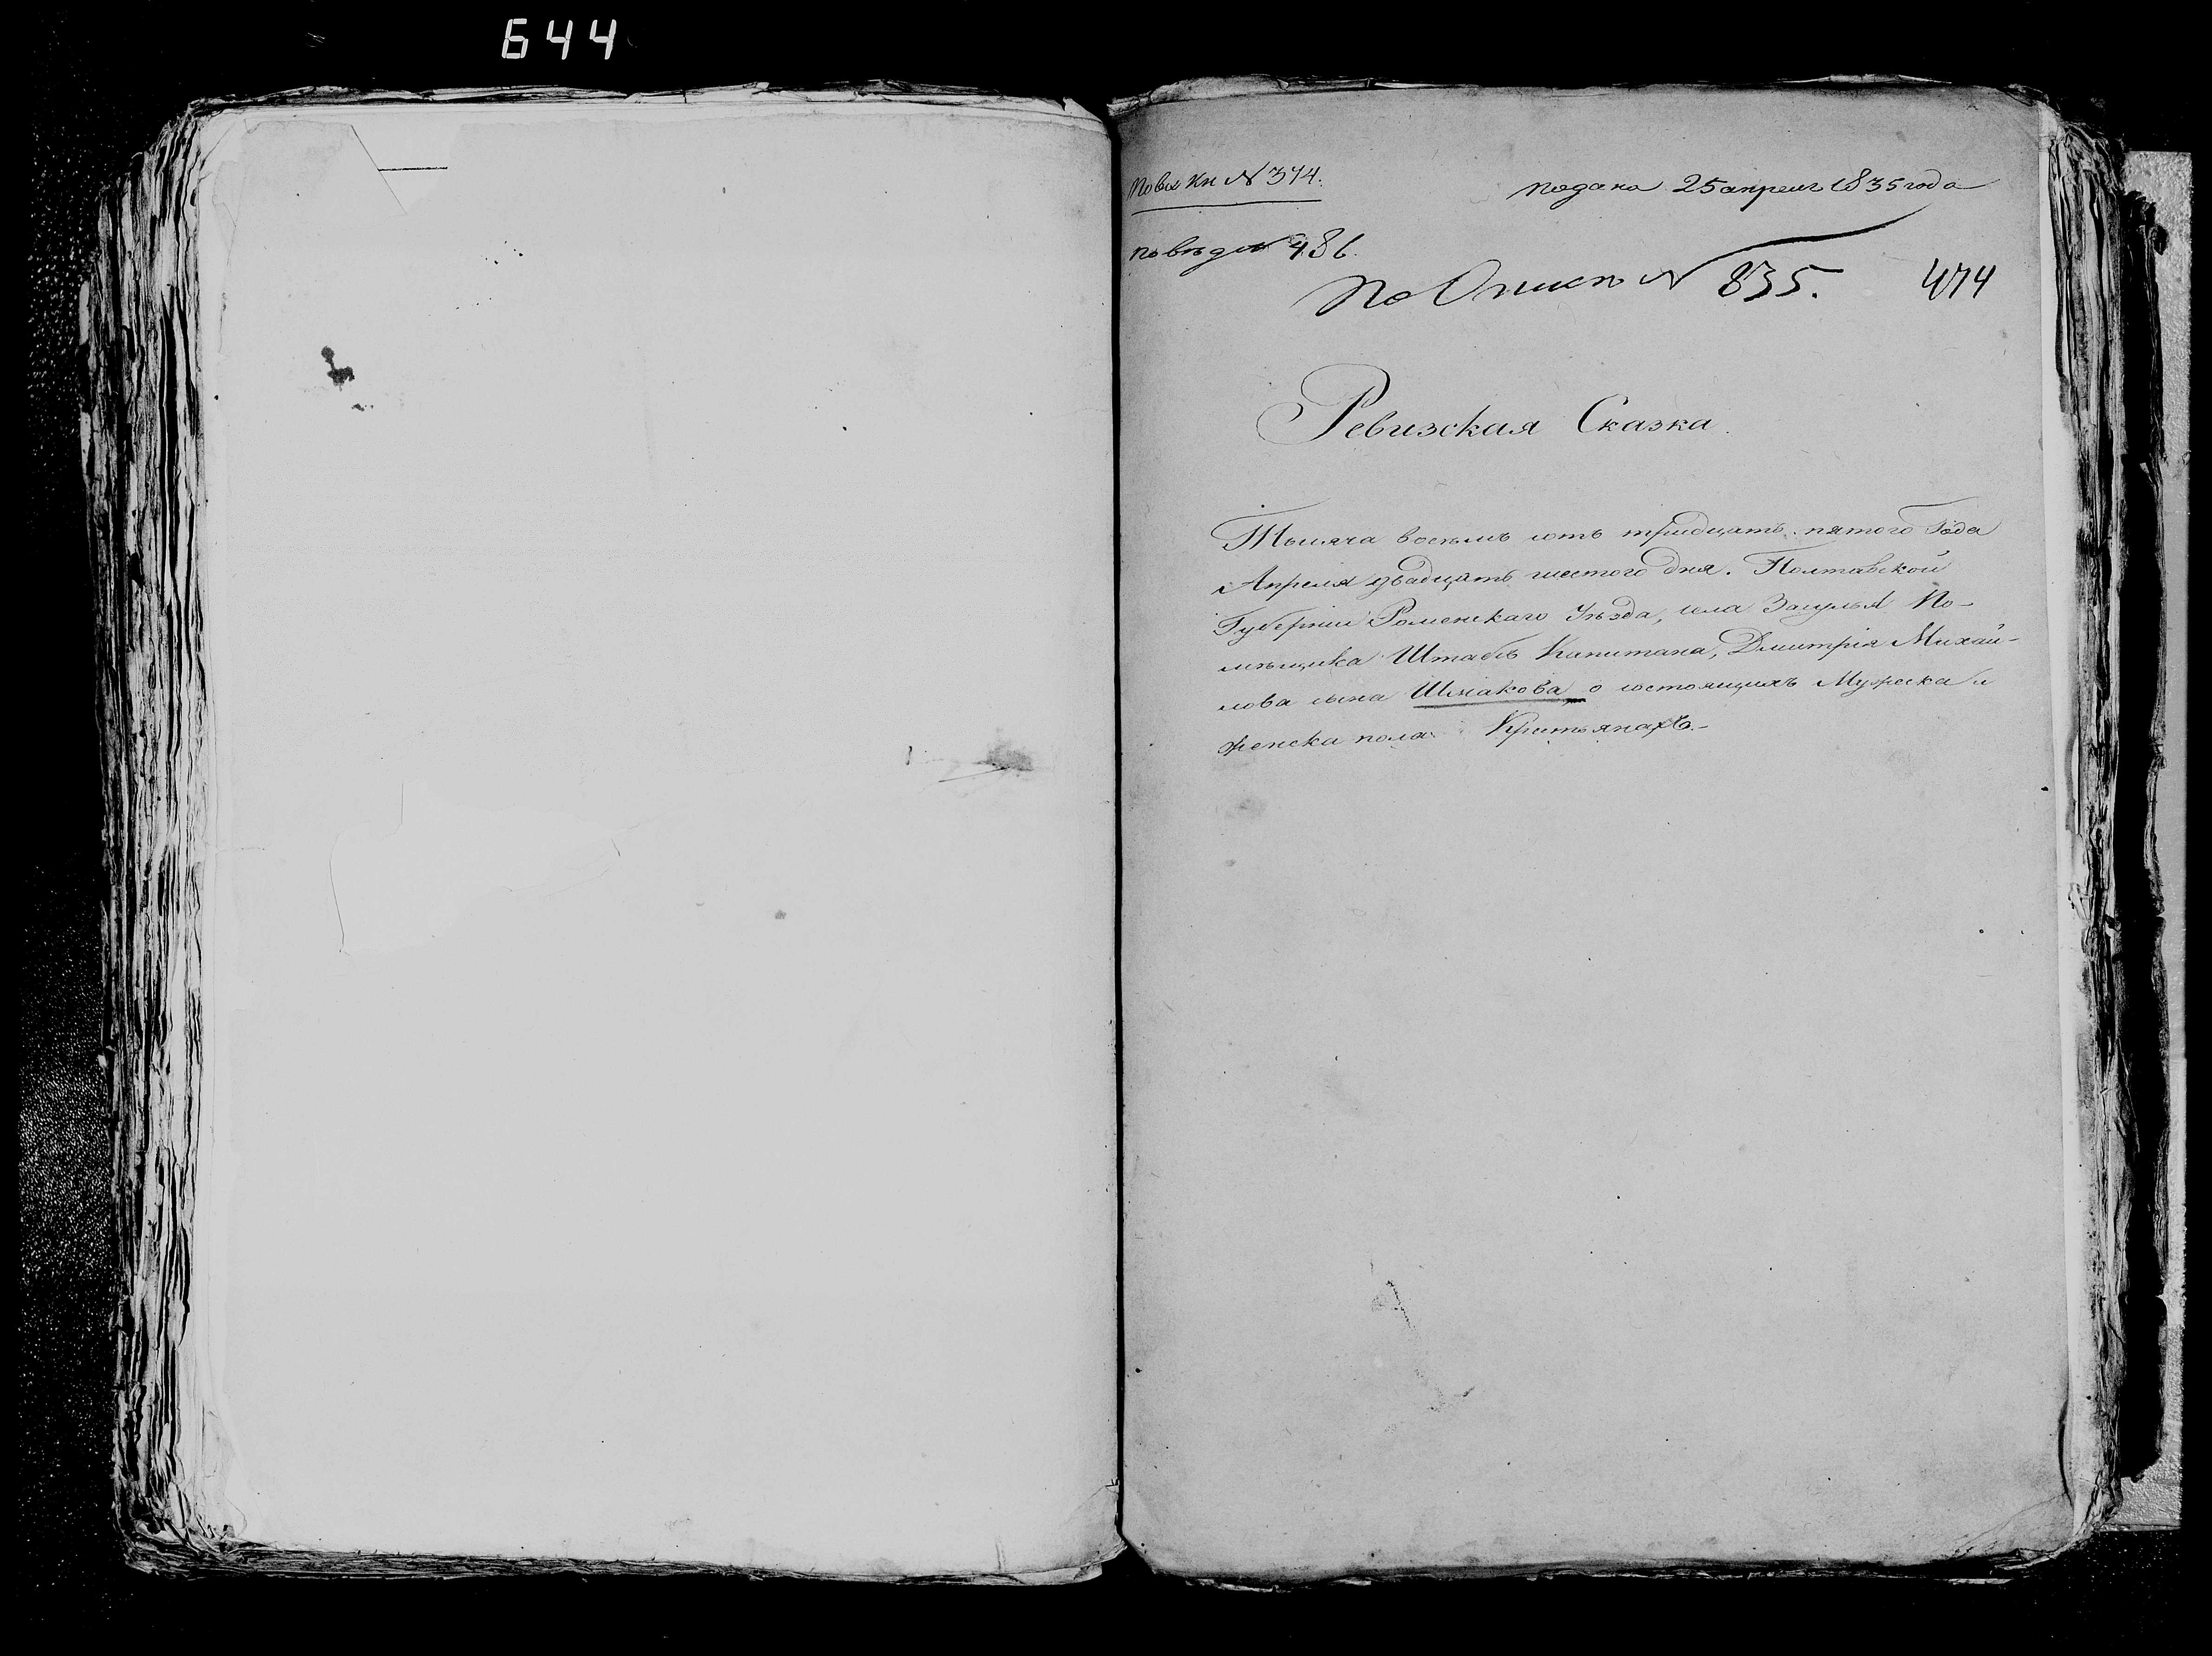 644
по вх кн № 374.
подана 25 апреля 1835 года
по вѣд № 486.
По Описи № 835.
474
Ревизская Сказка.
Тысяча восемь сотъ тридцать пятого Года
Апреля двадцать шестого дня. Полтавской
Губернии Роменскаго Уѣзда, села Засулья По-
мѣщика Штабъ Капитана, Дмитрія Михай-
лова сына Шлякова о состоящихъ Мужеска и
женска пола Крестьянахъ.-